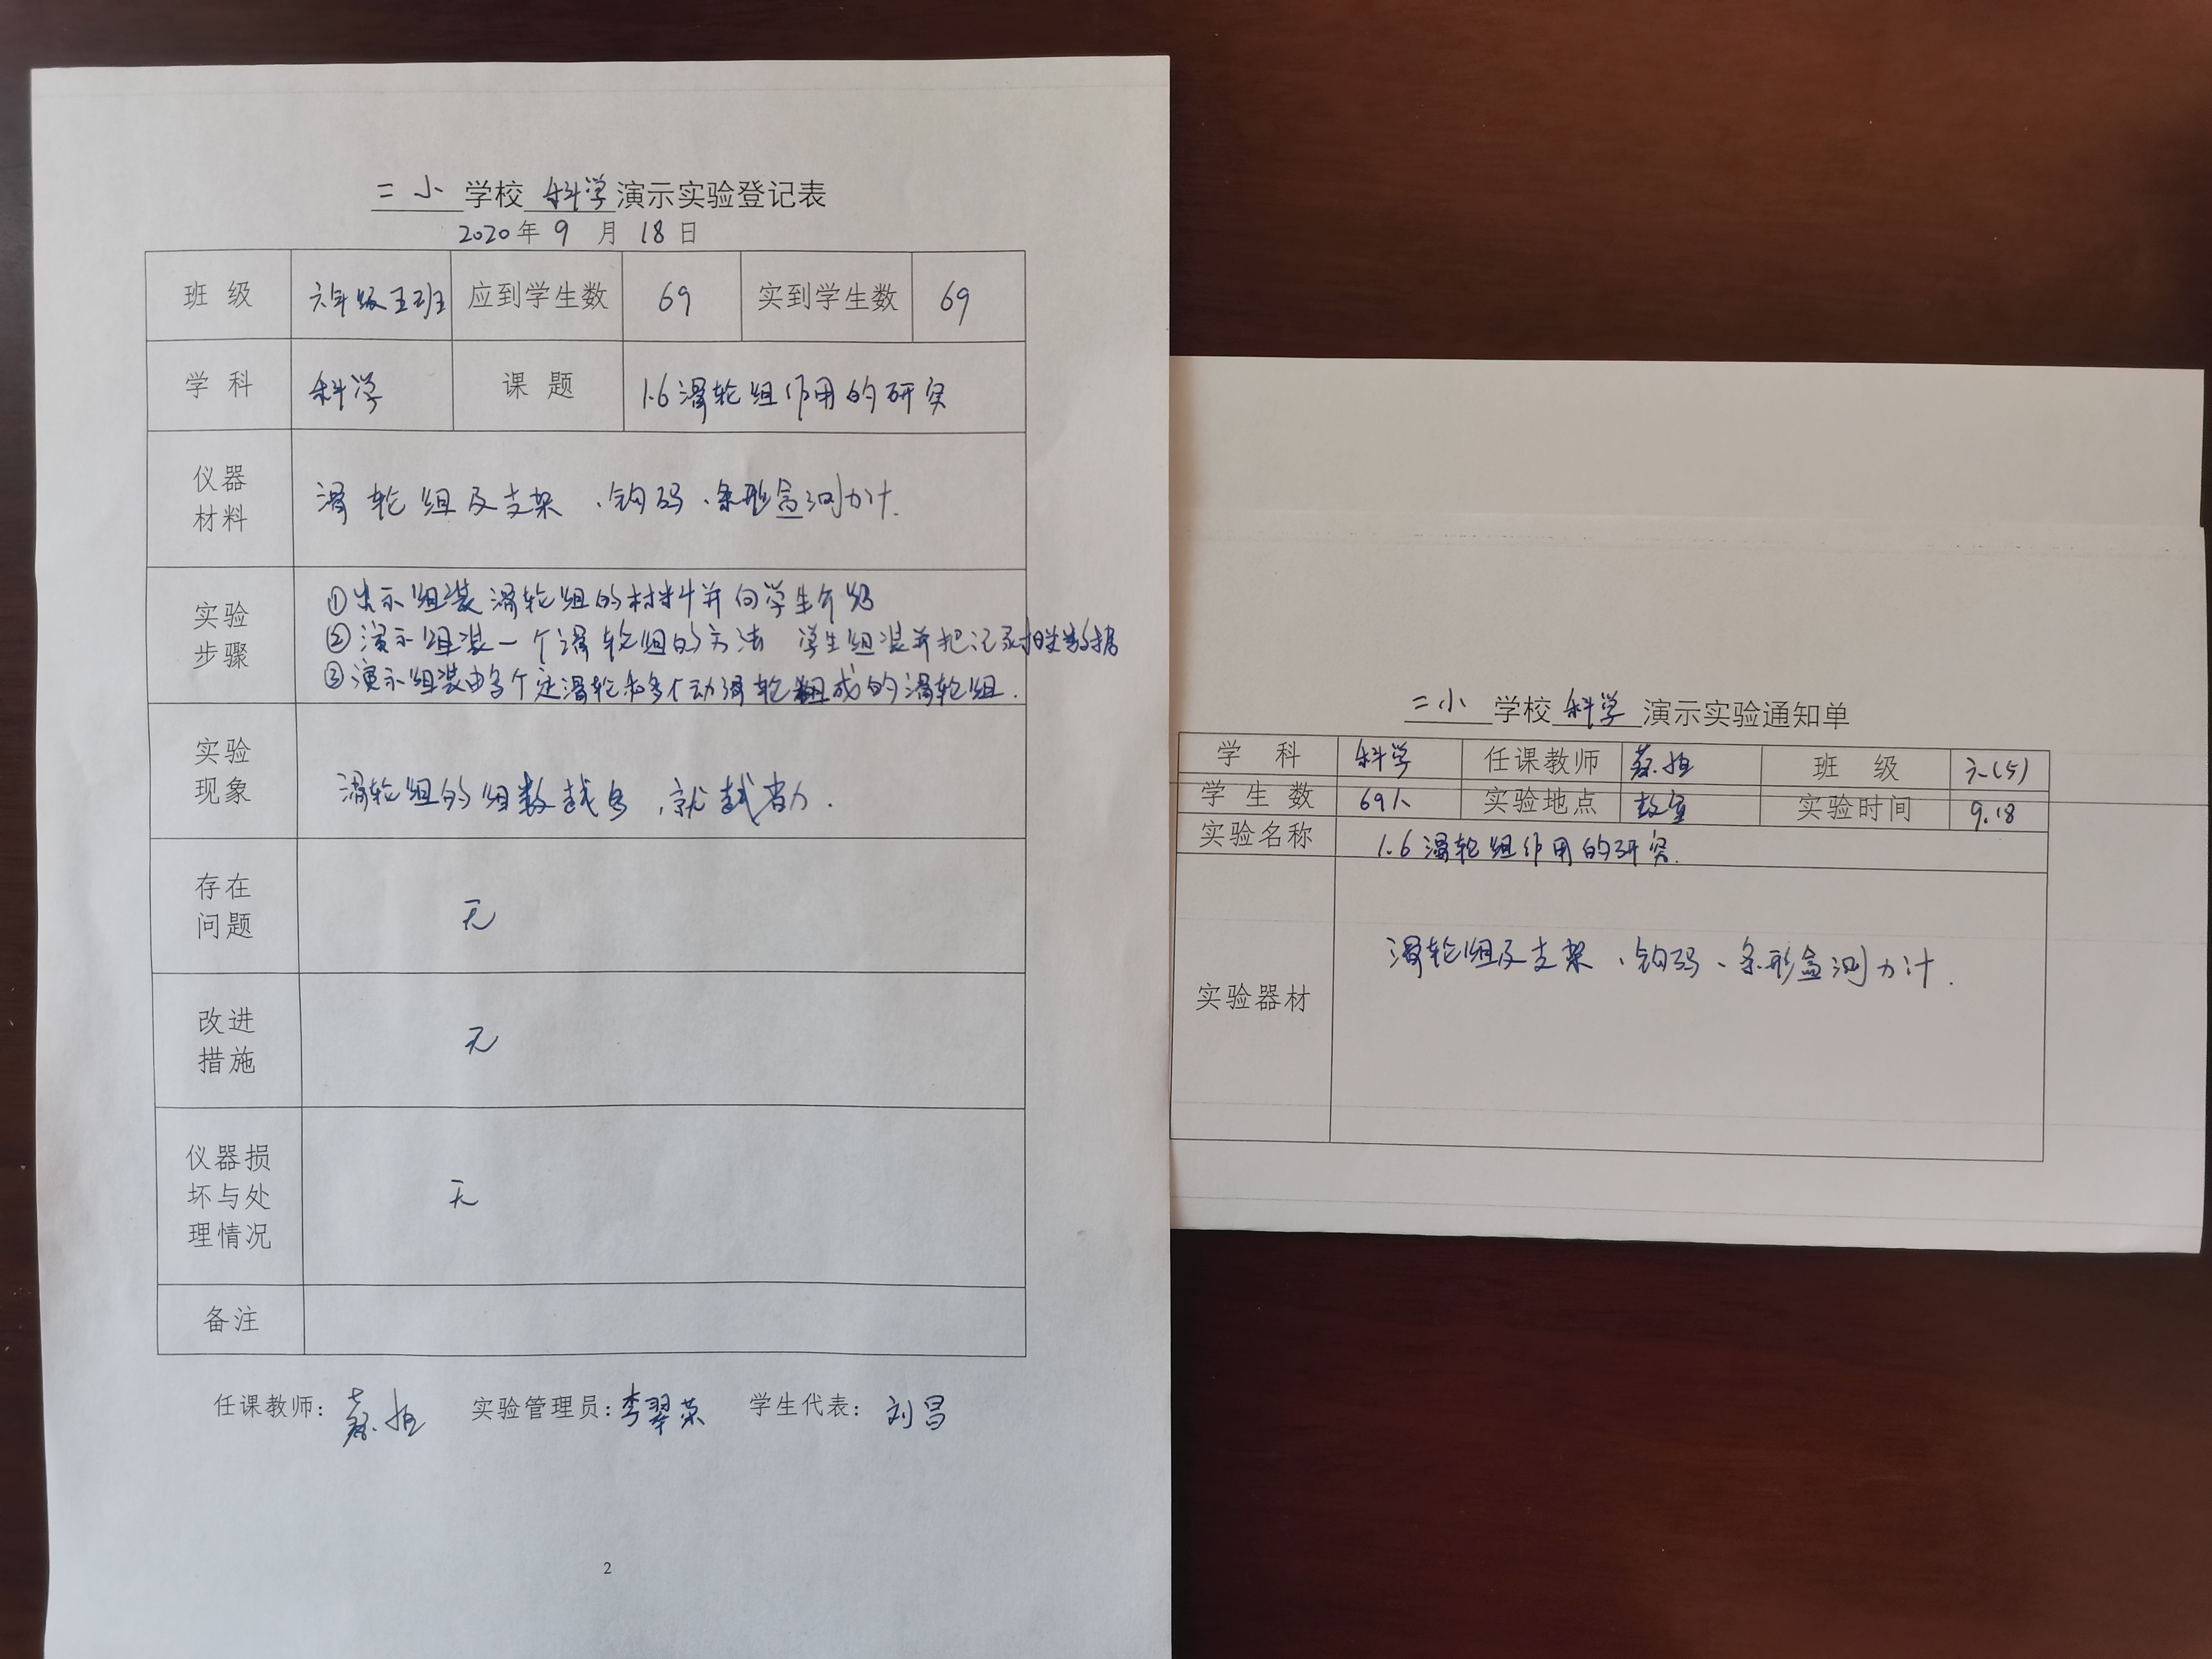 二小学校科学演示实验登记表
2020年9月18日
班级 六年级五班 应到学生数 69 实到学生数 69
学科 科学 课题 1.6滑轮组作用的研究
仪器
材料
滑轮组及支架、钩码、条形盒测力计.
实验
步骤
①出示组装滑轮组的材料并向学生介绍
②演示组装一个滑轮组的方法 学生组装并把记录相关数据
③演示组装由多个定滑轮和多个动滑轮组成的滑轮组.
实验
现象
滑轮组的组数越多,就越省力.
存在
问题
无
改进
措施
无
仪器损
坏与处
理情况
无
备注
任课教师: 实验管理员:李翠荣 学生代表:刘昌
2
二小学校科学演示实验通知单
学科 科学 任课教师 班级 六(5)
学生数 69人 实验地点 教室 实验时间 9.18
实验名称 1.6滑轮组作用的研究.
实验器材
滑轮组及支架、钩码、条形盒测力计.